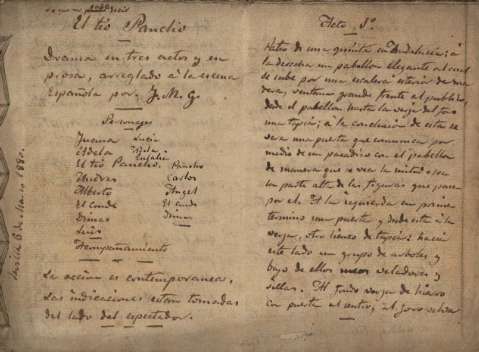 El tio Pancho
Drama en tres actos y en
prosa, arreglado á la escena
Española por J. M. G.
Personages
Lucia
Eulalia
El tio Pancho. Pancho
Carlos
Alberto Angel
El Conde El Conde
Dimas Dimas
Luis
La accion es contemporanea,
Las indicaciones estan tomadas
del lado del espectador.
8 de Marzo 1880.
Acto 1º
de una quinta en Andalucia; á
la derecha un pabellon elegante al cual
se sube por una escalera exterior de ma
dera, ventana grande frente al publico,
desde el pabellon hasta la verja del foro
una tapia; á la conclusion de esta se
vera una puerta que comunica por
medio de un pasadizo con el pabellon
de manera que se vea la mitad
la parte alta de las figuras que pasen
por el. A la izquierda en primer
termino una puerta y desde esta á la
verja, otro lienzo de tapia: hacia
este lado un grupo de arboles, y
bajo de ellos veladores y
sillas. Al fondo verja de hierro
con puerta al centro, al foro